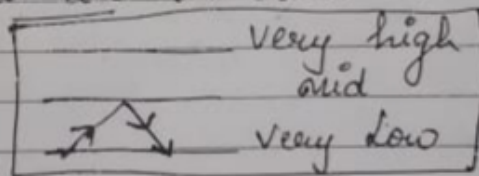 very high
mid
very Low